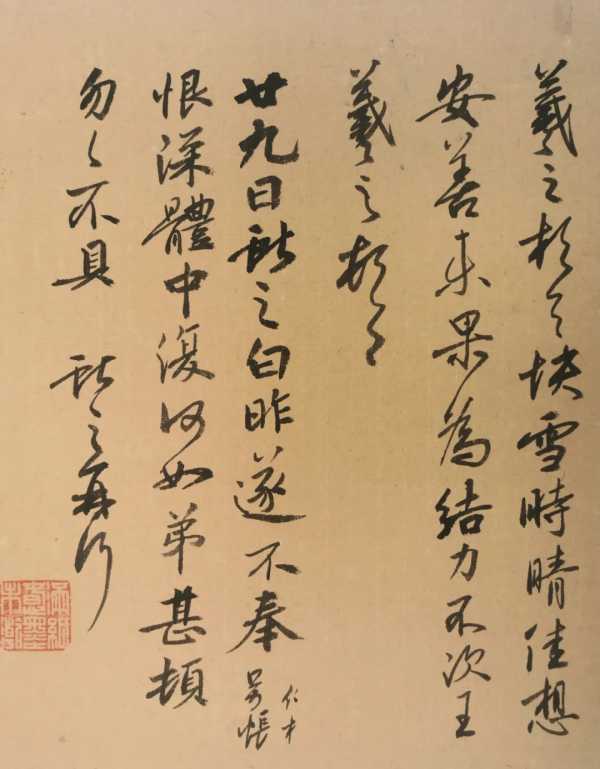 羲之頓首快雪時晴佳想
安善未果為結力不次王
羲之頓首
廿九日獻之白昨遂不奉
別悵
恨深體中復何如弟甚頓
勿々不具 獻之再拜